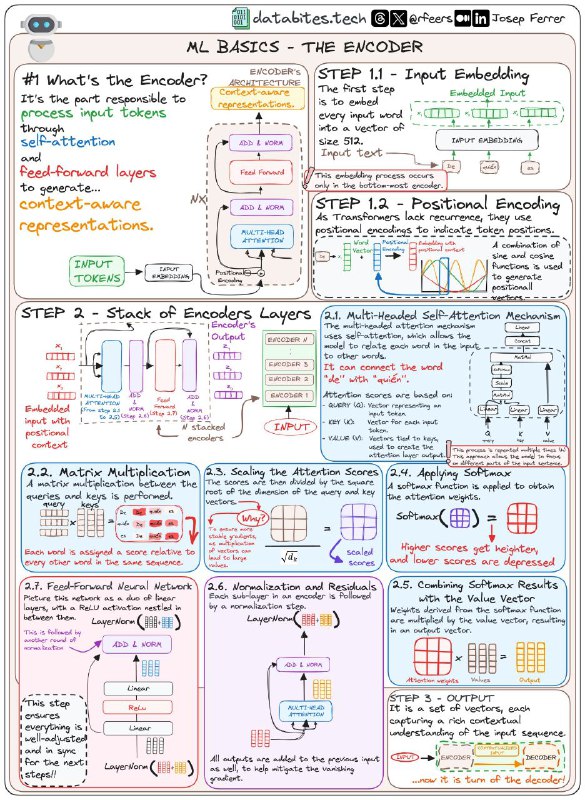 databites.tech @rfeers Josep Ferrer
ML BASICS - THE ENCODER
#1 What's the Encoder?
It's the part responsible to
process input tokens
through
self-attention
and
feed-forward layers
to generate...
context-aware
representations.
INPUT
TOKENS
INPUT
EMBEDDING
ENCODER's
ARCHITECTURE
Context-aware
representations.
ADD & NORM
Feed Forward
NX
ADD & NORM
MULTI-HEAD
ATTENTION
Positional
Encoding
STEP 1.1 - Input Embedding
The first step
is to embed
every input word
into a vector of
size 512.
Input text
Embedded Input
INPUT EMBEDDING
De
quién
es
This embedding process occurs
only in the bottom-most encoder.
STEP 1.2 - Positional Encoding
As Transformers lack recurrence, they use
positional encodings to indicate token positions.
De
Word
Vector
Positional
Encoding
Embedding with
positional context
A combination of
sine and cosine
functions is used
to generate
positional
vectors.
STEP 2 - Stack of Encoders Layers
Embedded
input with
positional
context
MULTI-HEAD
ATTENTION
(From step 2.1
to 2.5)
ADD &
NORM
(Step 2.6)
Feed
Forward
(Step 2.7)
ADD &
NORM
(Step 2.6)
Encoder's
Output
N stacked
encoders
ENCODER N
ENCODER 3
ENCODER 2
ENCODER 1
INPUT
2.1. Multi-Headed Self-Attention Mechanism
The multi-headed attention mechanism
uses self-attention, which allows the
model to relate each word in the input
to other words.
It can connect the word
"de" with "quién".
Attention scores are based on:
- QUERY (Q): Vector representing an
input token.
- KEY (K): Vector for each
input token.
- VALUE (V): Vectors tied to keys,
used to create the
attention layer output.
Linear
Concat
MatMul
Softmax
Scale
MatMul
Linear
Linear
Linear
Query
Key
Value
This process is repeated multiple times (h)
This approach allows the model to focus
on different parts of the input sentence.
2.2. Matrix Multiplication
A matrix multiplication between the
queries and keys is performed.
query
keys
De quién es
Each word is assigned a score relative to
every other word in the same sequence.
2.3. Scaling the Attention Scores
The scores are then divided by the square
root of the dimension of the query and key
vectors.
Why?
To ensure more
stable gradients,
as multiplication
of vectors can
lead to large
values.
√dk
scaled
scores
2.4. Applying Softmax
A softmax function is applied to obtain
the attention weights.
Softmax( ) =
Higher scores get heighten,
and lower scores are depressed
2.7. Feed-Forward Neural Network
Picture this network as a duo of linear
layers, with a ReLU activation nestled in
between them.
LayerNorm( + )
This is followed by
another round of
normalization
ADD & NORM
Linear
ReLu
Linear
LayerNorm( + )
This step
ensures
everything is
well-adjusted
and in sync
for the
next steps!!
2.6. Normalization and Residuals
Each sub-layer in an encoder is followed
by a normalization step.
LayerNorm( + )
ADD & NORM
MULTI-HEAD
ATTENTION
All outputs are added to the previous input
as well, to help mitigate the vanishing
gradient.
2.5. Combining Softmax Results
with the Value Vector
Weights derived from the softmax function
are multiplied by the value vector, resulting
in an output vector.
x =
Attention weights
Values
Output
STEP 3 - OUTPUT
It is a set of vectors, each
capturing a rich contextual
understanding of the input sequence.
INPUT
ENCODER
Contextualized
input
DECODER
...now it is turn of the decoder!